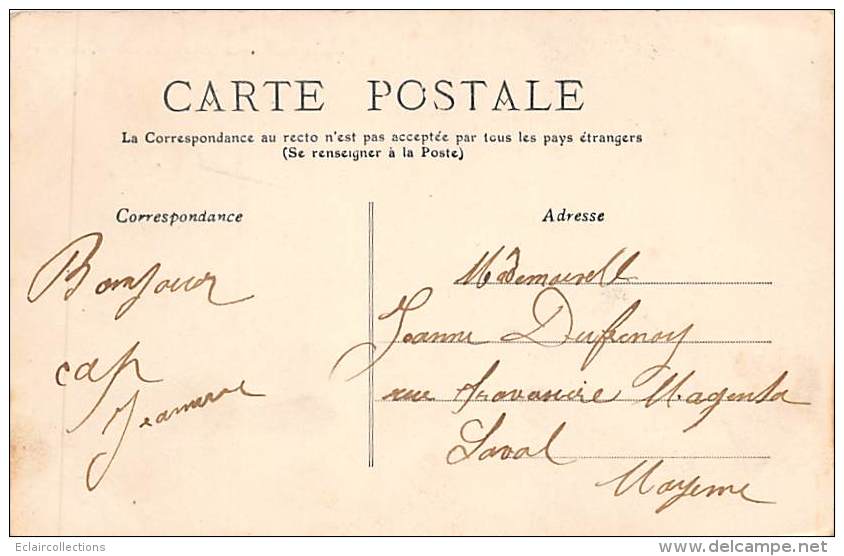 CARTE POSTALE
La Correspondance au recto n'est pas acceptée par tous les pays étrangers
(Se renseigner à la Poste)
Correspondance
Adresse
Bonjour
Mademoisell
Jeanne Dufrenoy
rue Magenta
Laval
Mayenne
Eclaircollections
www.delcampe.net